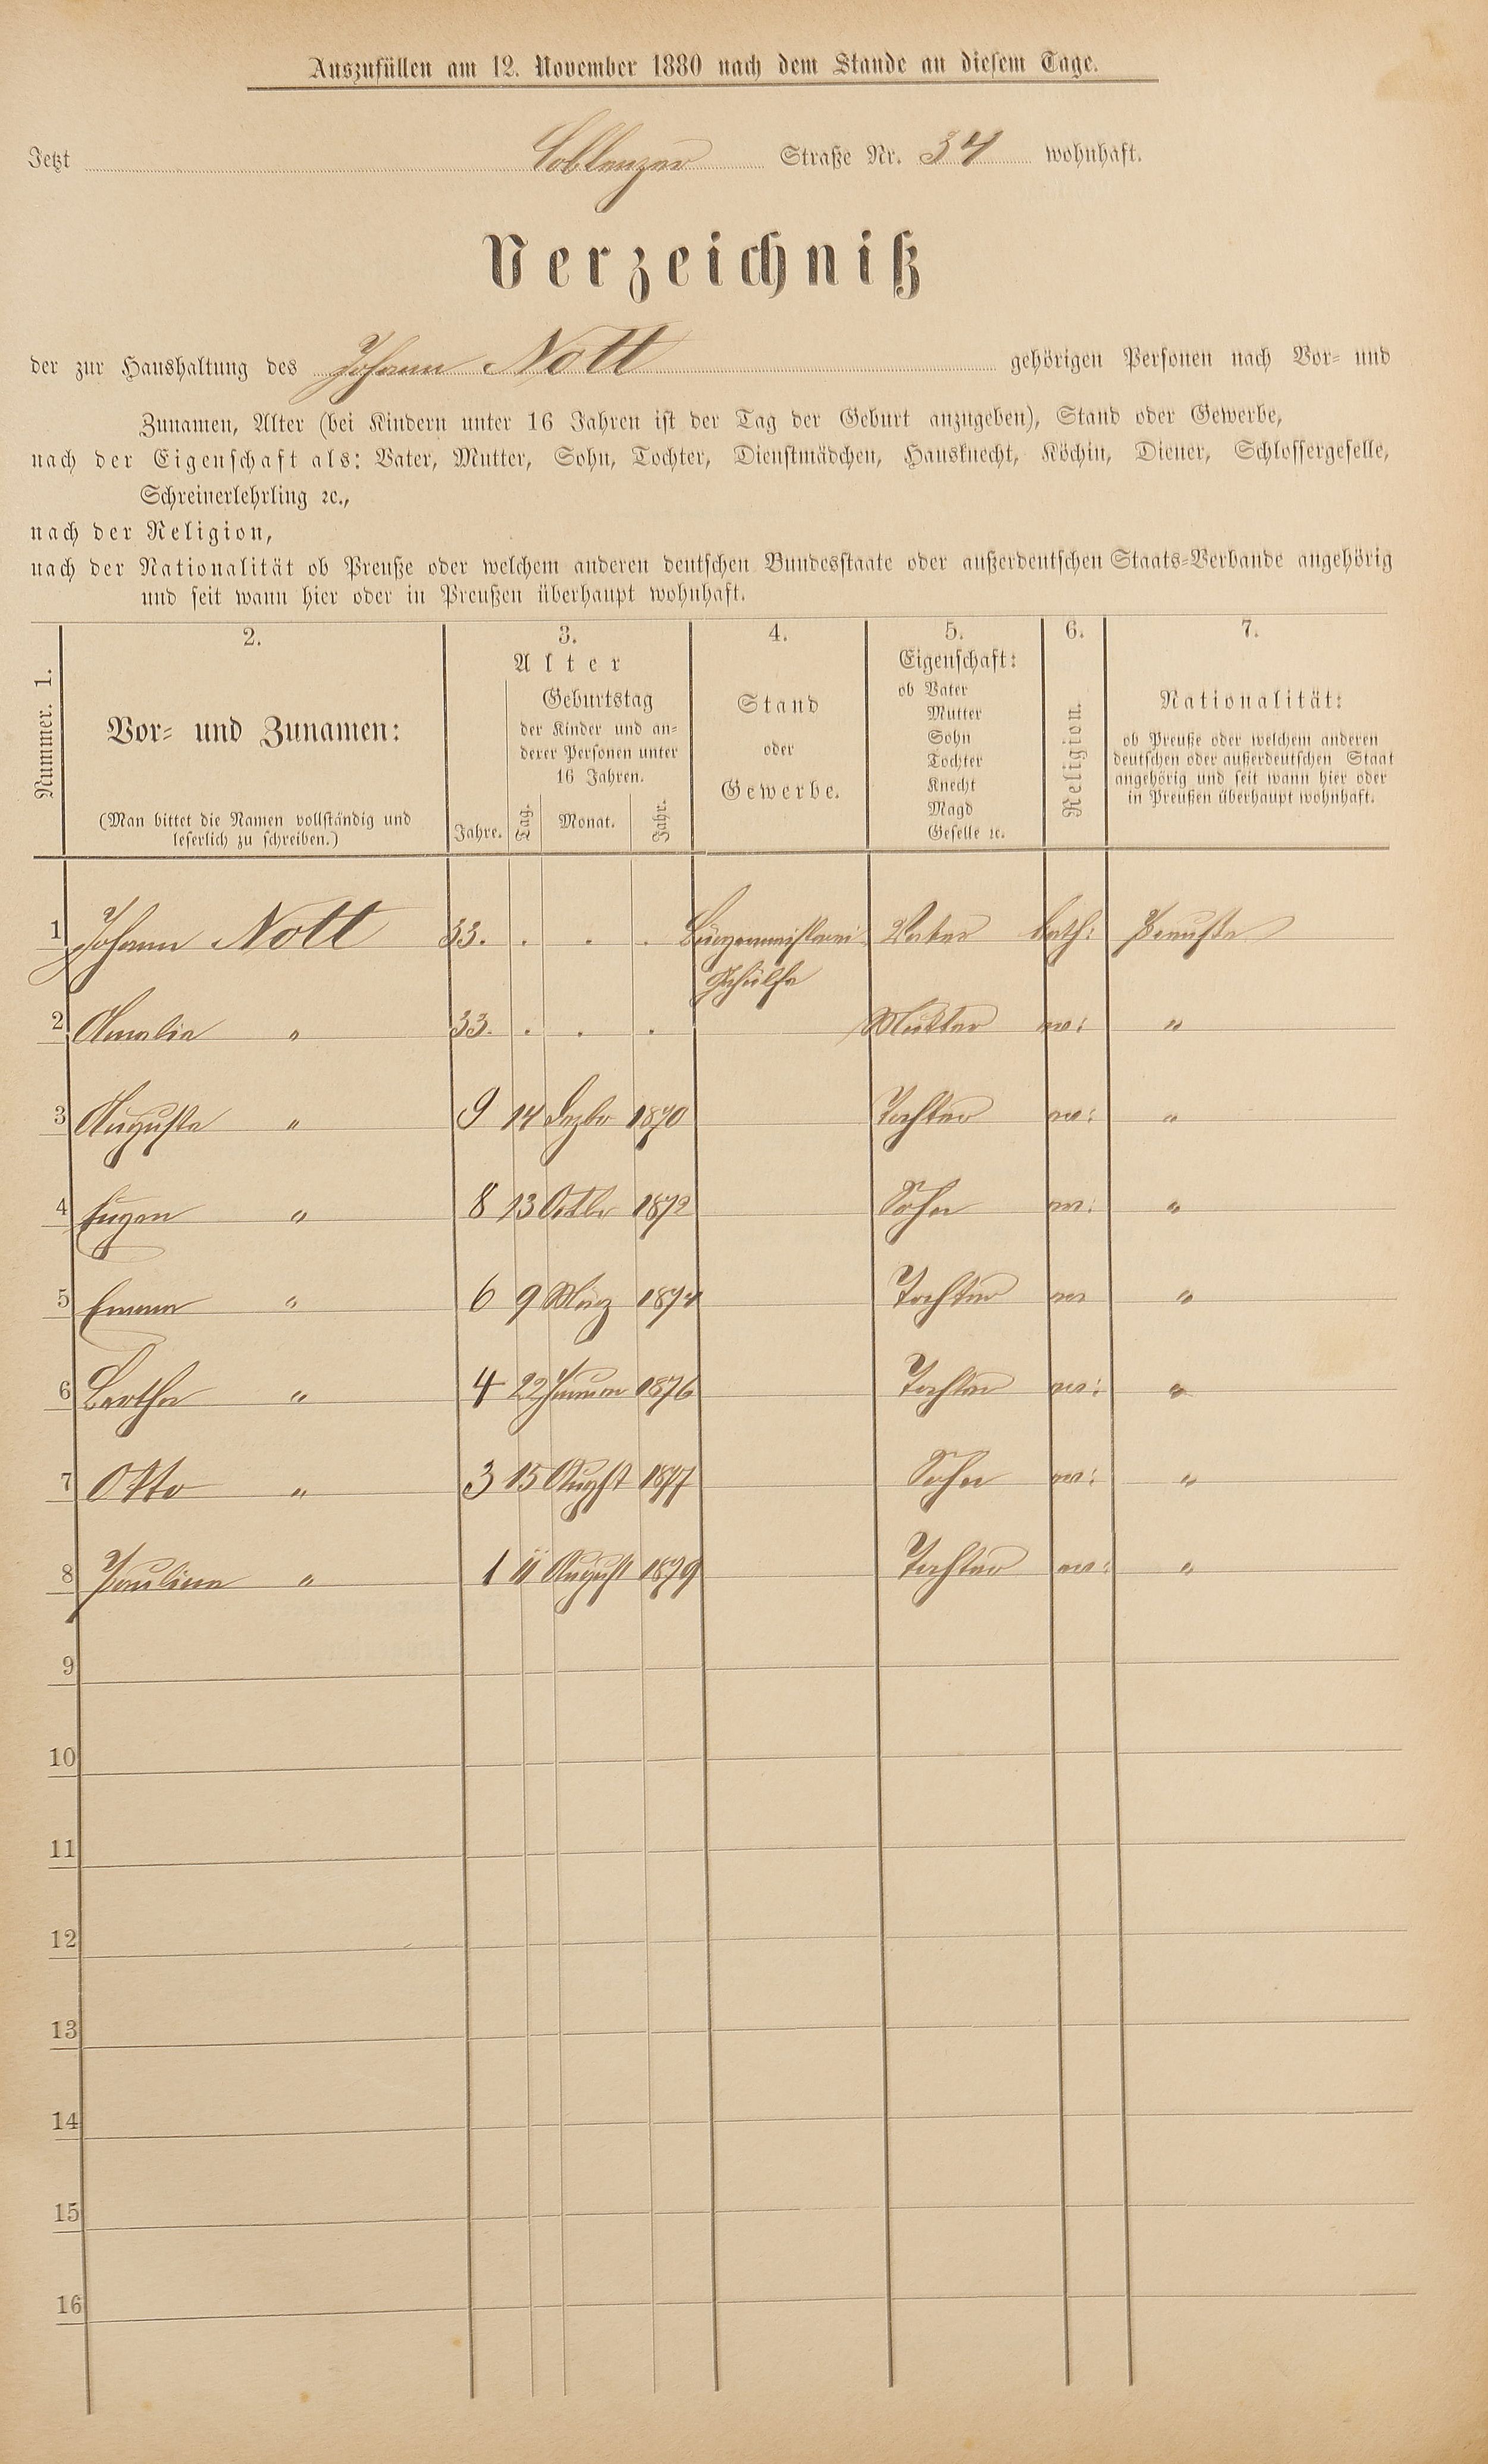 Auszufüllen am 12. November 1880 nach dem Stande an diesem Tage.
Jetzt Coblenzer Straße Nr. 34 wohnhaft.
Verzeichniß
der zur Haushaltung des Johann Nott gehörigen Personen nach Vor- und
Zunamen, Alter (bei Kindern unter 16 Jahren ist der Tag der Geburt anzugeben), Stand oder Gewerbe,
nach der Eigenschaft als: Vater, Mutter, Sohn, Tochter, Dienstmädchen, Hausknecht, Köchin, Diener, Schlossergeselle,
Schreinerlehrling ꝛc.,
nach der Religion,
nach der Nationalität ob Preuße oder welchem anderen deutschen Bundesstaate oder außerdeutschen Staats-Verbande angehörig
und seit wann hier oder in Preußen überhaupt wohnhaft.
Nummer. 1.
2.
Vor- und Zunamen:
(Man bittet die Namen vollständig und
leserlich zu schreiben.)
3.
Alter
Jahre.
Geburtstag
der Kinder und an-
derer Personen unter
16 Jahren.
Tag. Monat. Jahr.
4.
Stand
oder
Gewerbe.
5.
Eigenschaft:
ob Vater
Mutter
Sohn
Tochter
Knecht
Magd
Geselle ꝛc.
6.
Religion.
7.
Nationalität:
ob Preuße oder welchem anderen
deutschen oder außerdeutschen Staat
angehörig und seit wann hier oder
in Preußen überhaupt wohnhaft.
1 Johann Nott 33. . . . Bürgermeisterei Vater kath: Preuße
Gehülfe
2 Amalia " 33. . . . Mutter " "
3 Auguste " 9 14 Dezbr 1870 Tochter " "
4 Eugen " 8 13 Octbr 1872 Sohn " "
5 Emma " 6 9 März 1874 Tochter "
6 Bertha " 4 22 1876 Tochter "
7 Otto " 3 15 August 1877 Sohn "
8 Pauline " 1 11 August 1879 Tochter "
9
10
11
12
13
14
15
16